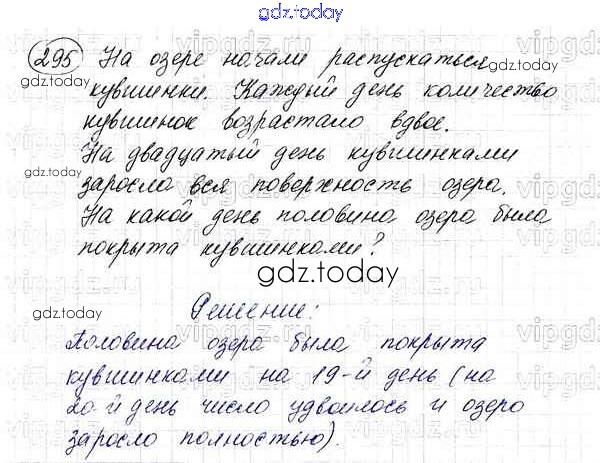 gdz.today
295 На озере начали распускаться
gdz.today
gdz.today
кувшинки. Каждый день количество
кувшинок возрастало вдвое.
На двадцатый день кувшинками
заросла вся поверхность озера.
На какой день половина озера была
покрыта кувшинками?
gdz.today
Решение:
gdz.today
gdz.today
Половина озера была покрыта
кувшинками на 19-й день (на
20-й день число удвоилось и озеро
заросло полностью).
gdz.today
gdz.today
gdz.today